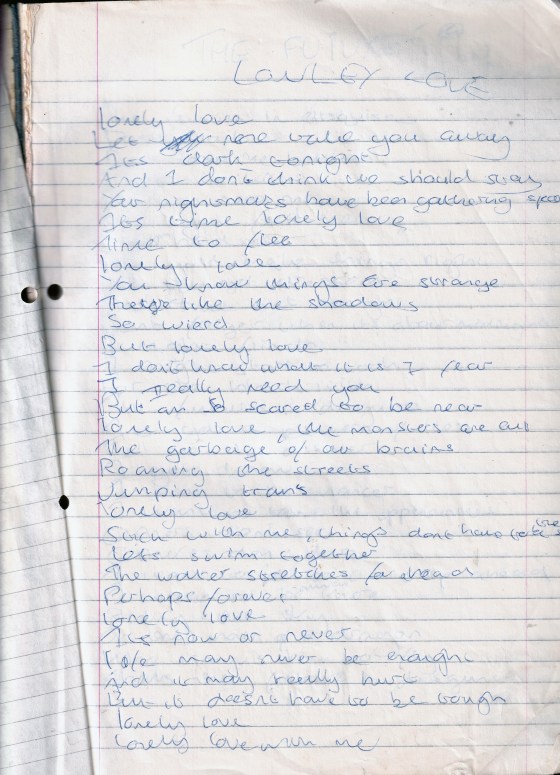 LONLEY LOVE
lonely love
Let me take you away
Its dark tonight
And I dont think we should stay
Your nightmares have been gathering speed
Its time lonely love
Time to flee
lonely love
You know things are strange
like the shadows
So wierd
But lonely love
I dont know what it is I fear
I really need you
But am so scared to be near
lonely love, the monsters are out
The garbage of our brains
Roaming the streets
Jumping trains
lonely love
Stick with me, things dont have to be
lets swim together
The water stretches far ahead
Perhaps forever
lonely love
Its now or never
may never be enough
And it may really hurt
But it doesnt have to be tough
lonely love
lonely love with me